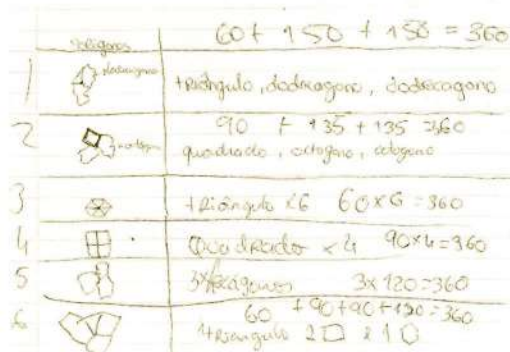 Polígonos
60 + 150 + 150 = 360
1
dodecagono
triângulo, dodecagono, dodecagono
2
90 + 135 + 135 = 360
octógn
quadrado, octogono, octogono
3
triângulo x6 60x6 = 360
4
Quadrado x 4 90x4=360
5
3x hexágonos 3x120=360
6
60 + 90+90+120=360
1triangulo 2 1